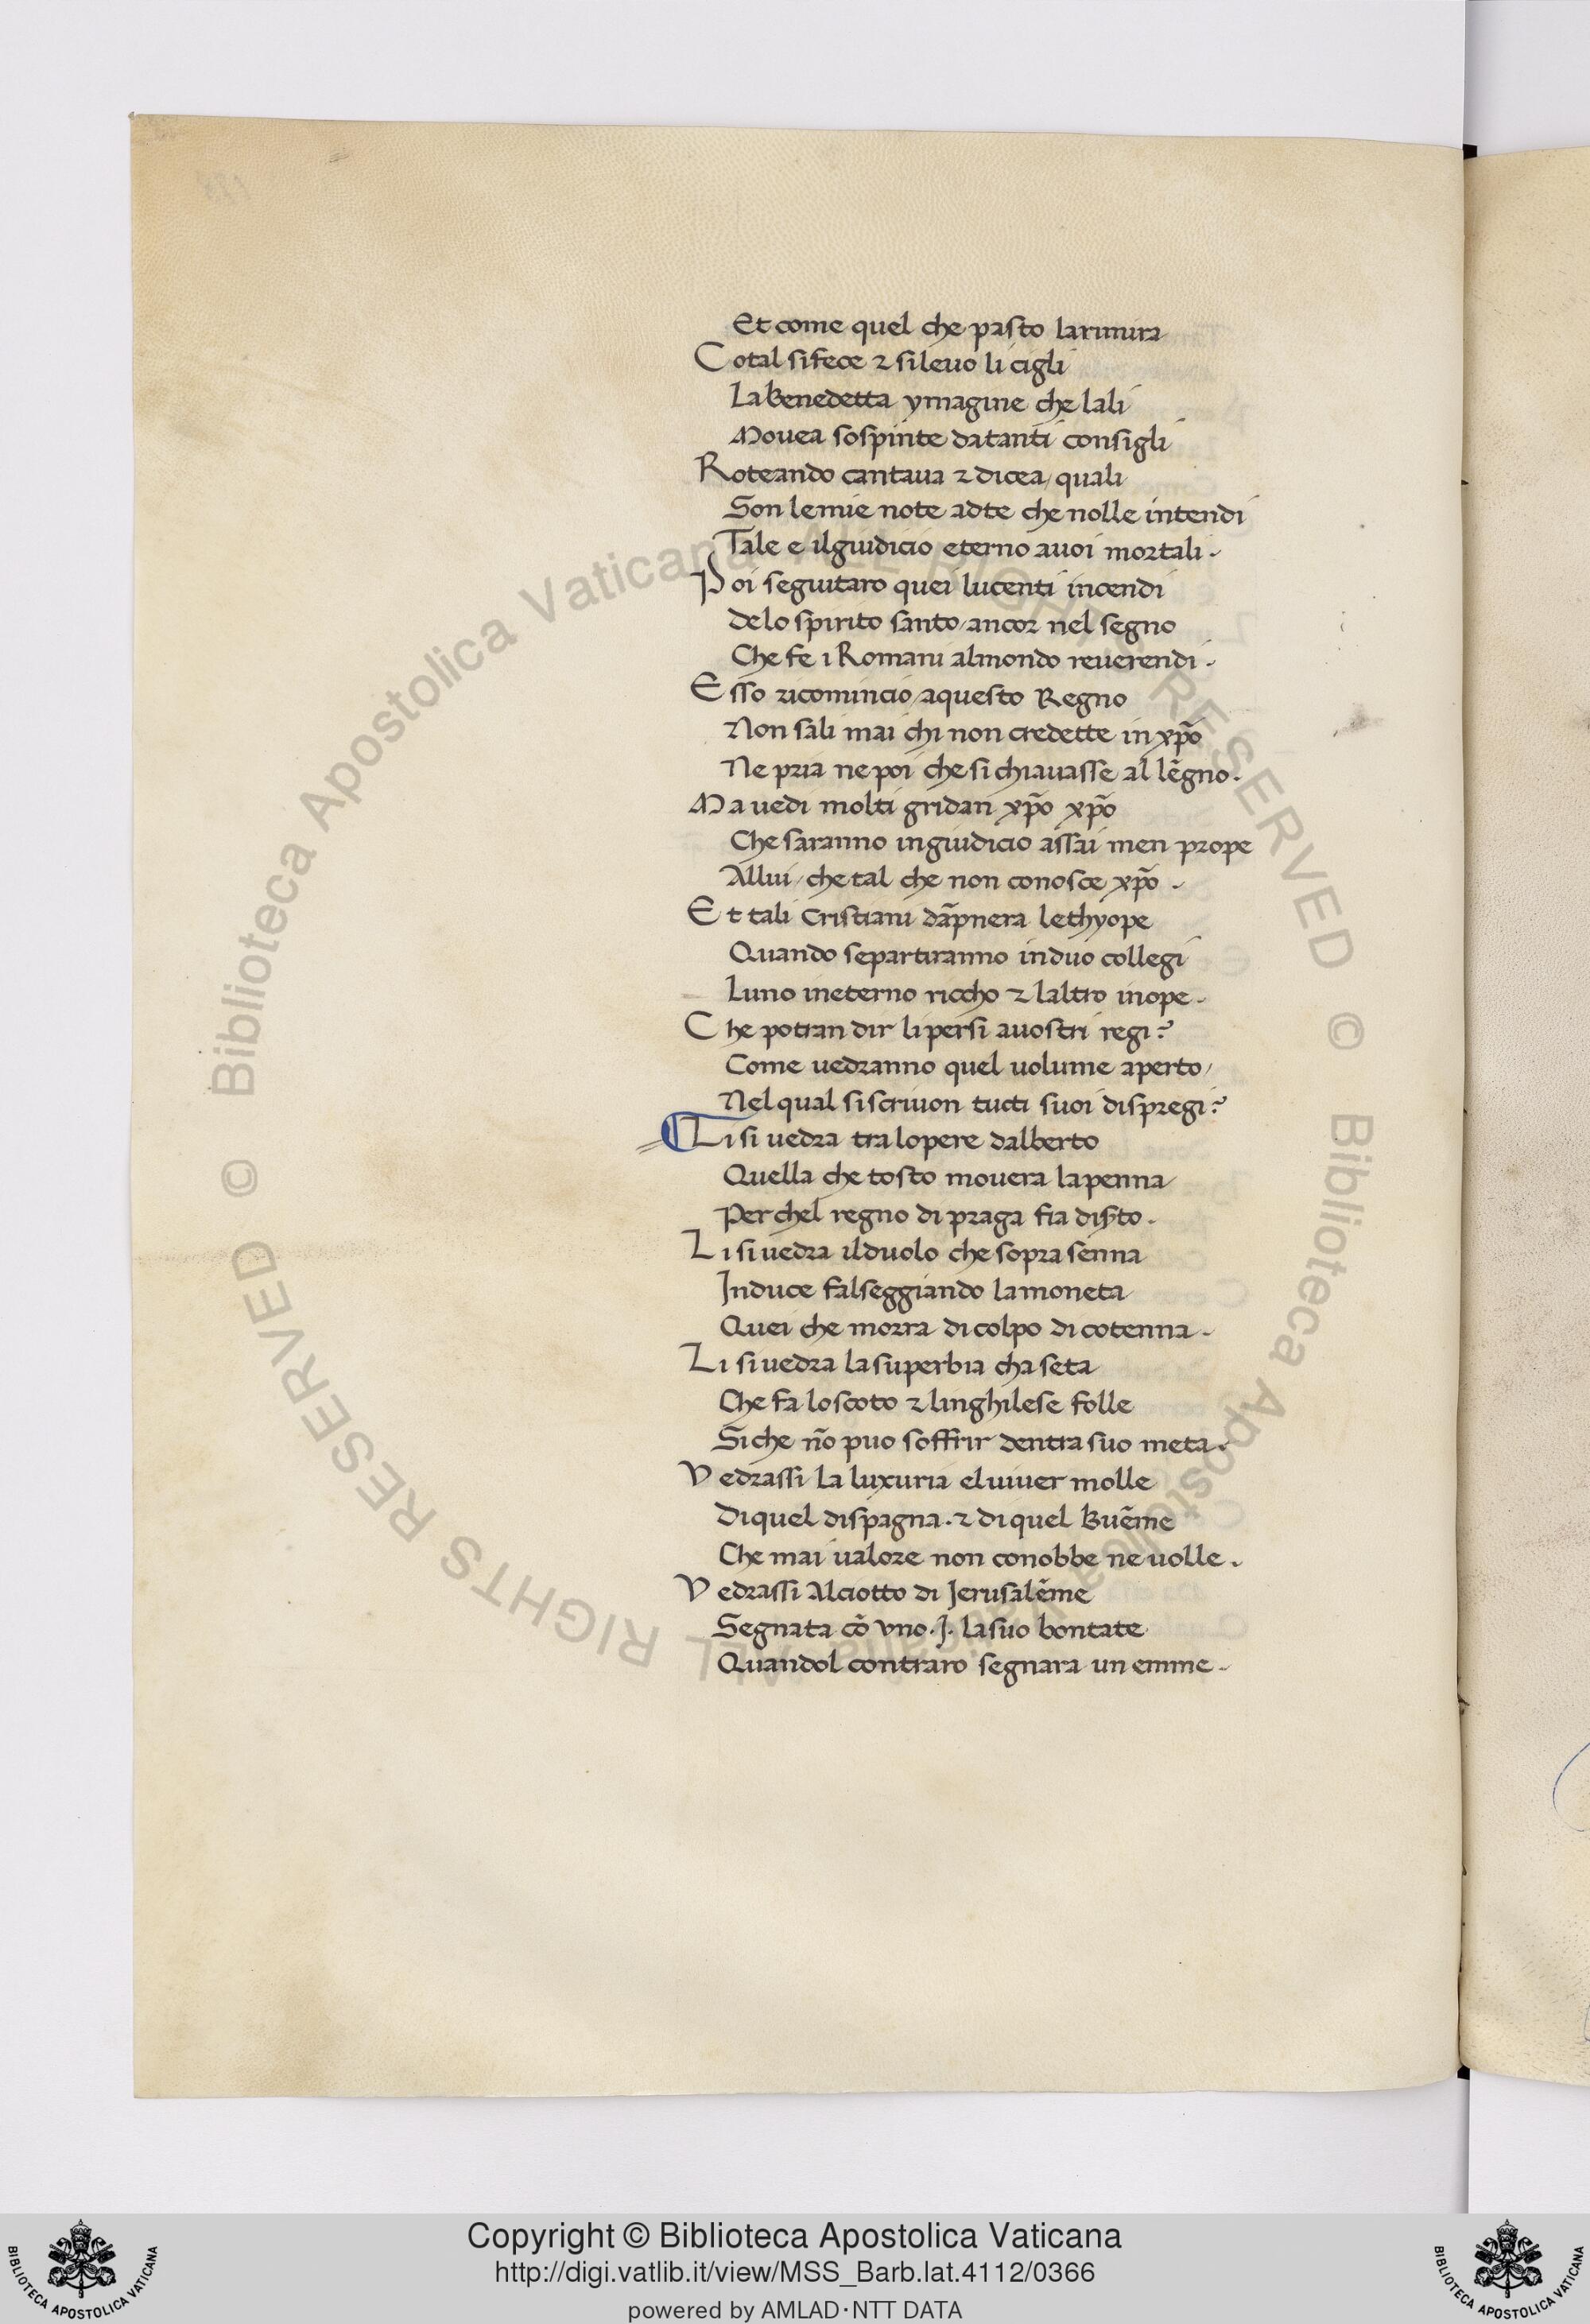 Et come quel che pasto larimira
Cotal sifece ⁊ silevo li cigli
La benedetta ymagine che lali
Movea sospinte datanti consigli
Roteando cantava ⁊ dicea / quali
Son lemie note adte che nolle intendi
Tale e ilgiudicio eterno avoi mortali.
Poi seguitaro quei lucenti incendi
Delo spirito santo / ancor nel segno
Che fe i Romani almondo reverendi.
Esso ricomincio / aquesto Regno
Non sali mai chi non credette in xp̄o
Ne pria ne poi che si chiavasse al legno.
Ma vedi molti gridan xp̄o xp̄o
Che saranno ingiudicio assai men prope
Allui / che tal che non conosce xp̄o.
Et tali Cristiani dāpnera lethyope
Quando separtiranno induo collegi
Luno ineterno riccho ⁊ laltro inope.
Che potran dir lipersi avostri regi?
Come vedranno quel volume aperto /
Nelqual siscrivon tucti suoi dispregi?
Li si vedra tra lopere dalberto
Quella che tosto movera lapenna
Perchel regno di praga fia diserto.
Li si vedra ilduolo che sopra senna
Induce falseggiando lamoneta
Quei che morra di colpo di cotenna.
Li si vedra lasuperbia cha seta
Che fa loscoto ⁊ linghilese folle
Siche nō puo soffrir dentra suo meta.
Vedrassi la luxuria elviver molle
Di quel dispagna. ⁊ di quel Buēme
Che mai valore non conobbe ne volle.
Vedrassi Alciotto di Jerusalēme
Segnata cō vno .J. lasuo bontate
Quandol contraro segnara un emme.
Copyright © Biblioteca Apostolica Vaticana
http://digi.vatlib.it/view/MSS_Barb.lat.4112/0366
powered by AMLAD·NTT DATA
BIBLIOTECA APOSTOLICA VATICANA
BIBLIOTECA APOSTOLICA VATICANA
© Biblioteca Apostolica Vaticana ALL RIGHTS RESERVED
© Biblioteca Apostolica Vaticana ALL RIGHTS RESERVED